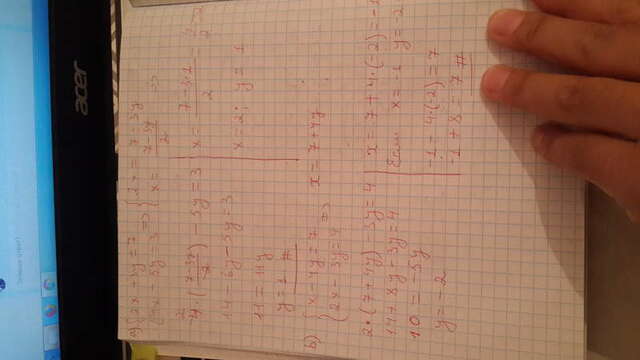 acer
a) { 2x + 3y = 7 => { 2x = 7 - 3y
4x - 5y = 3 x = (7-3y)/2 =>
4 • ((7-3y)/2) - 5y = 3
14 - 6y - 5y = 3
11 = 11y
y = 1 #
x = (7-3•1)/2 =
x = 2 ; y = 1
b) { x - 4y = 7 => x = 7 + 4y
2x - 3y = 4
2 • (7 + 4y) - 3y = 4
14 + 8y - 3y = 4
10 = -5y
y = -2
x = 7 + 4 • (-2) = -1
Если x = -1 y = -2
-1 - 4•(-2) = 7
-1 + 8 = 7 #